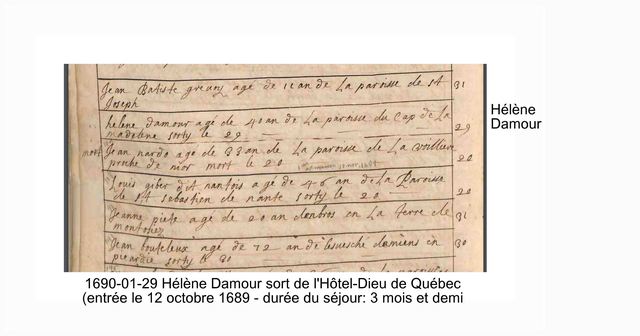 Jean Batiste grevoy agé de 11 an de La paroisse de St 31
Joseph
helene damour agé de 40 an de La paroisse du Cap de La
madelene sorty le 29 29
mort Jean nardo agé de 33 an de La paroisse de La
proche de nior mort le 20 20
Louis giber dit nantois agé de 46 an de La Paroisse
de St sebastien de nante sorty le 20 20
Jeanne piete agé de 20 an en La terre de 31
Jean bouteleux agé de 72 an de Leveché damiens en 30
picardie sorty le 30
Hélène
Damour
1690-01-29 Hélène Damour sort de l'Hôtel-Dieu de Québec
(entrée le 12 octobre 1689 - durée du séjour: 3 mois et demi